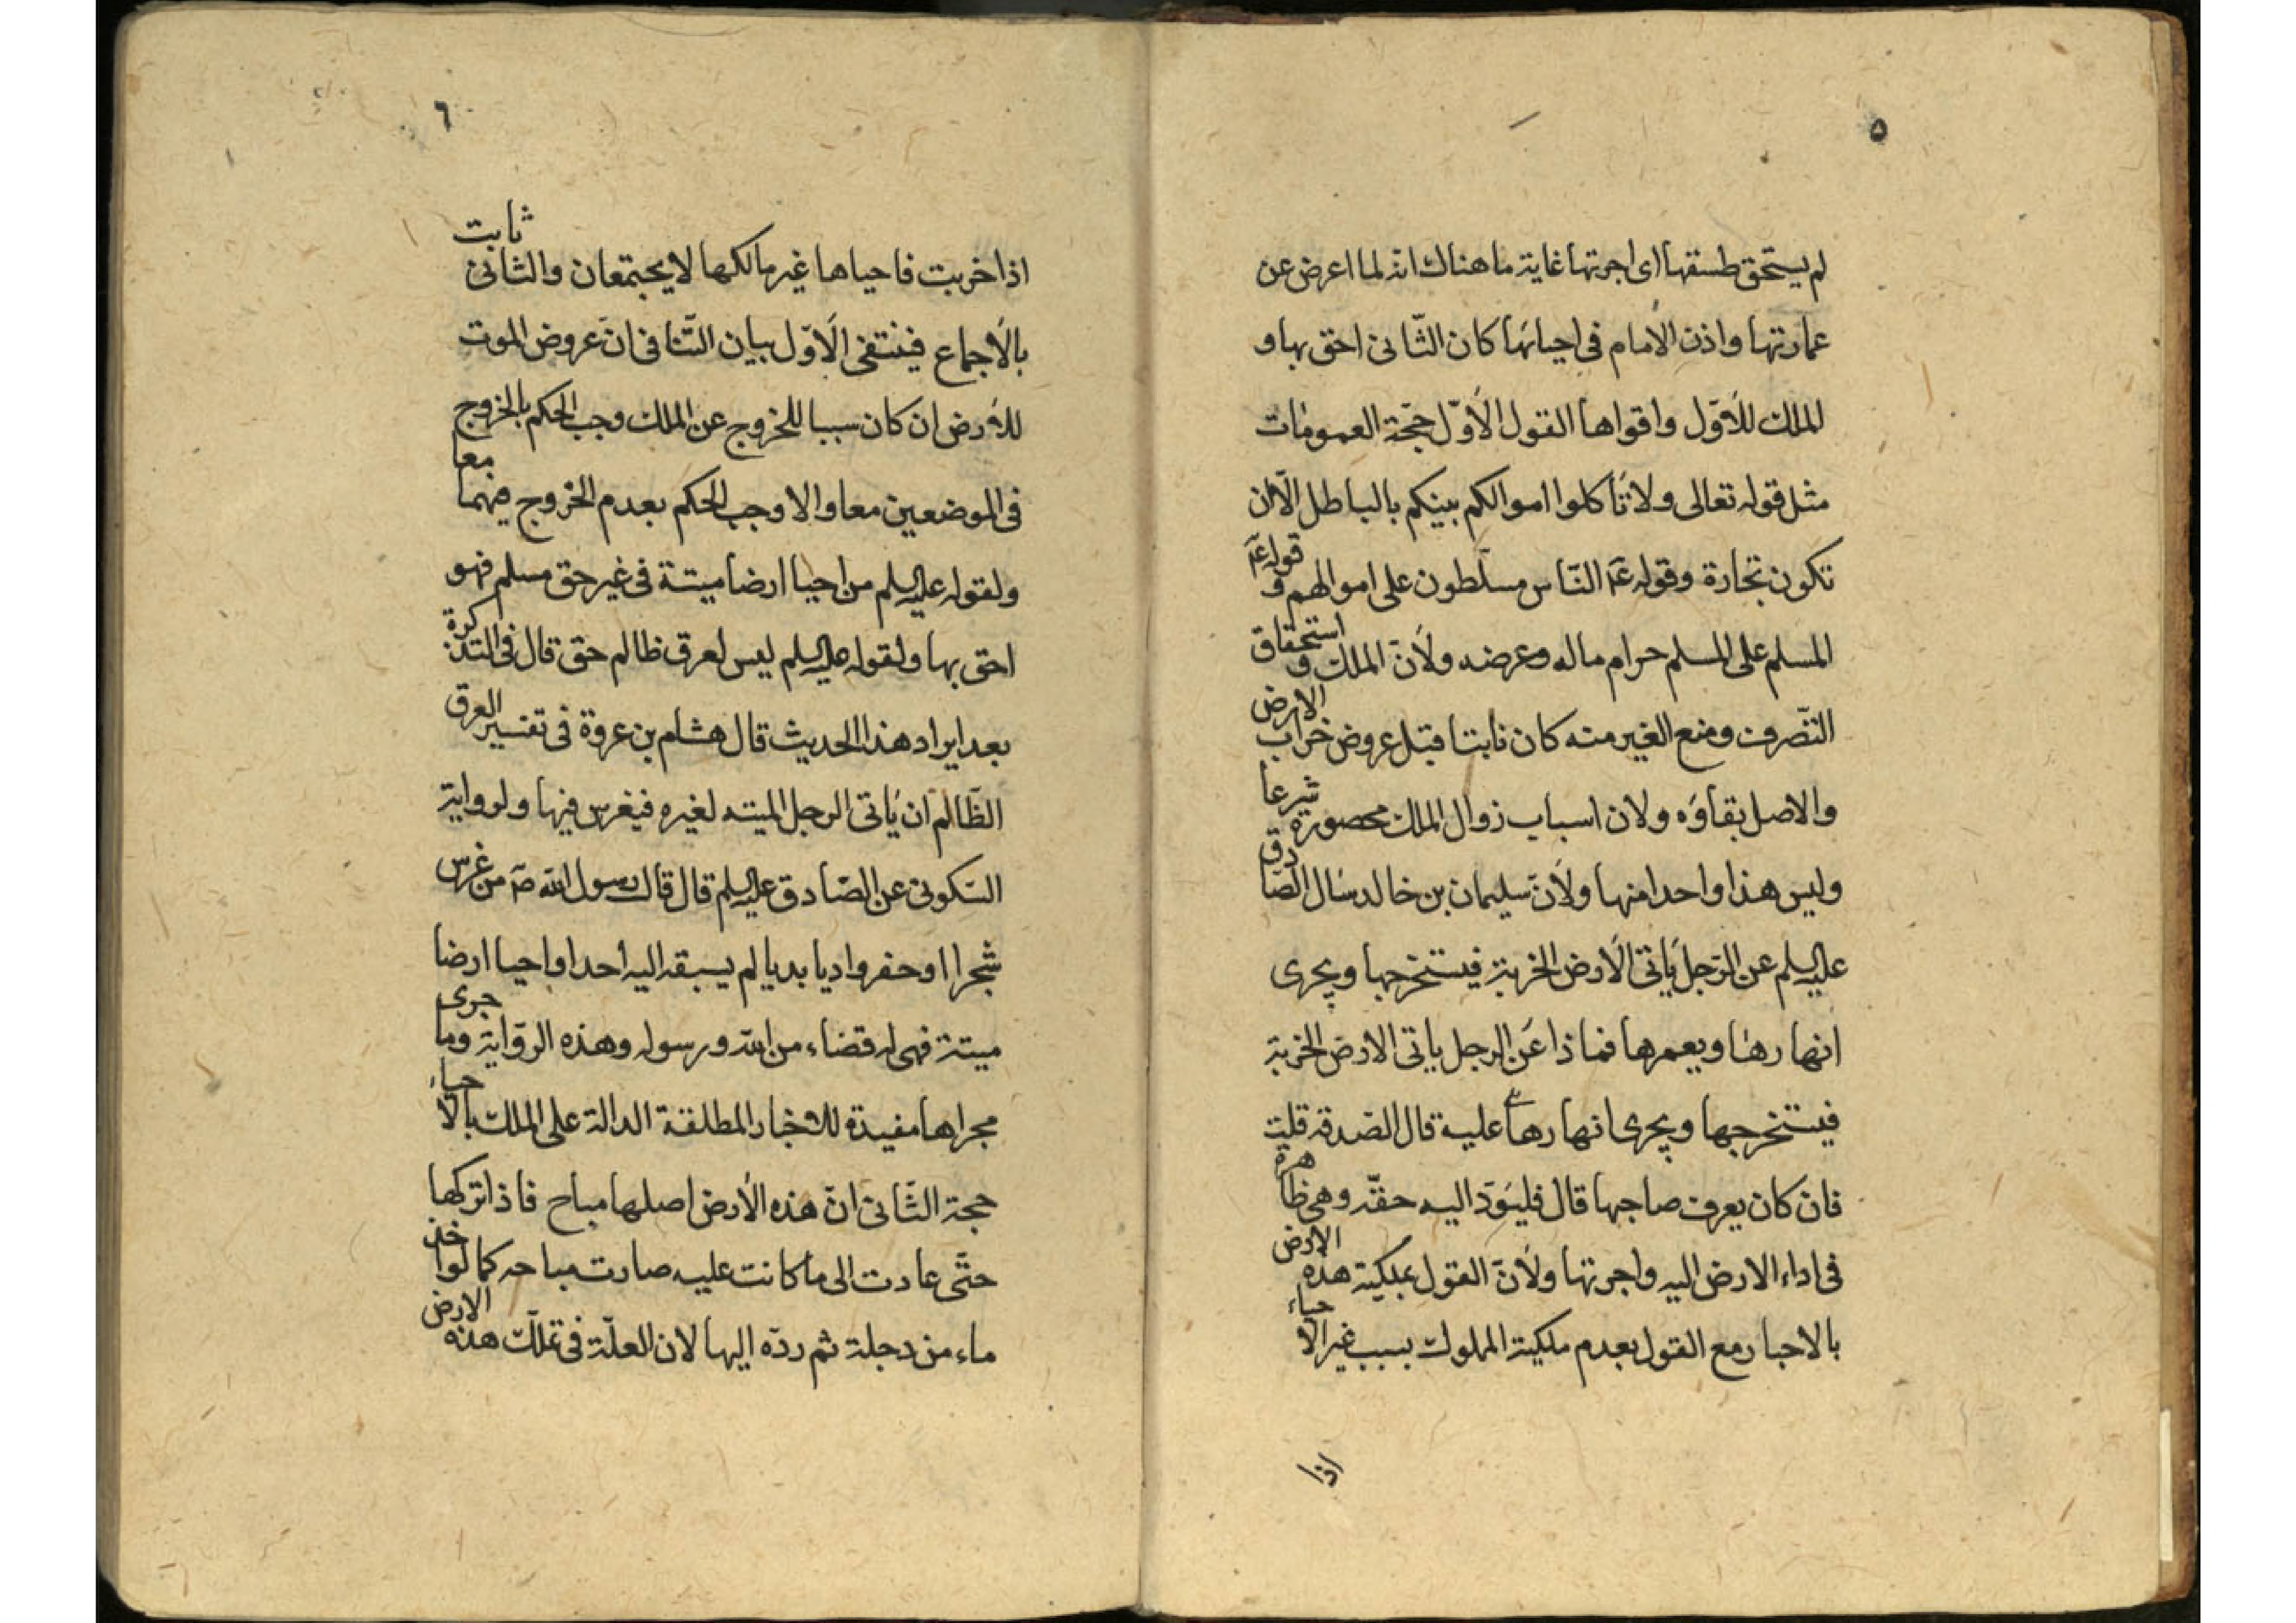 ٥
لم يستحق طسقها اى اجرتها غاية ما هناك انه لما اعرض عن
عمارتها واذن الامام فى احيائها كان الثّانى احق بها و
الملك للأوّل واقواها القول الأوّل حجّة العمومات
مثل قوله تعالى ولا تأكلوا اموالكم بينكم بالباطل الّا ان
تكون تجارة وقوله عم النّاس مسلّطون على اموالهم و قوله عم
المسلم على المسلم حرام ماله وعرضه ولأنّ الملك و استحقاق
التّصرف ومنع الغير منه كان ثابتا قبل عروض خراب الارض
والاصل بقاؤه ولان اسباب زوال الملك محصورة شرعا
وليس هذا واحدا منها ولأنّ سليمان بن خالد سال الصّادق
عليه السلم عن الرّجل ياتى الأرض الخربة فيستخرجها ويجرى
انهارها ويعمرها فماذا عن الرجل ياتى الارض الخربة
فيستخرجها ويجرى انهارها عليه قال الصّدقه قلت
فان كان يعرف صاحبها قال فليؤدّ اليه حقّه وهى ظاهرة
فى اداء الارض اليه واجرتها ولأنّ القول بملكية هذه الارض
بالاحيا مع القول بعدم ملكية المملوك بسبب غير الاحياء
اذا
٦
اذا خربت فاحياها غير مالكها لا يجتمعان والثانى ثابت
بالأجماع فينتفى الأوّل بيان التّنافى انّ عروض الموت
للأرض ان كان سببا للخروج عن الملك وجب الحكم بالخروج
فى الموضعين معا والا وجب الحكم بعدم الخروج فيهما معا
ولقوله عليه السلم من احيا ارضا ميتة فى غير حق مسلم فهو
احق بها ولقوله عليه السلم ليس لعرق ظالم حق قال فى التذكرة
بعد ايراد هذا الحديث قال هشام بن عروة فى تفسير العرق
الظّالم ان ياتى الرجل الميته لغيره فيغرس فيها ولرواية
السّكونى عن الصّادق عليه السلم قال قال رسول الله ص من غرس
شجرا او حفر واديا بديا لم يسبقه اليه أحد او احيا ارضا
ميتة فهى له قضاء من الله ورسوله وهذه الرّواية وما جرى
مجراها مفيدة للاخبار المطلقة الدالة على الملك بالاحياء
حجة الثّانى انّ هذه الأرض اصلها مباح فاذا تركها
حتّى عادت الى ما كانت عليه صارت مباحه كما لو اخذ
ماء من دجلة ثم ردّه اليها لان العلّة فى تملّك هذه الارض